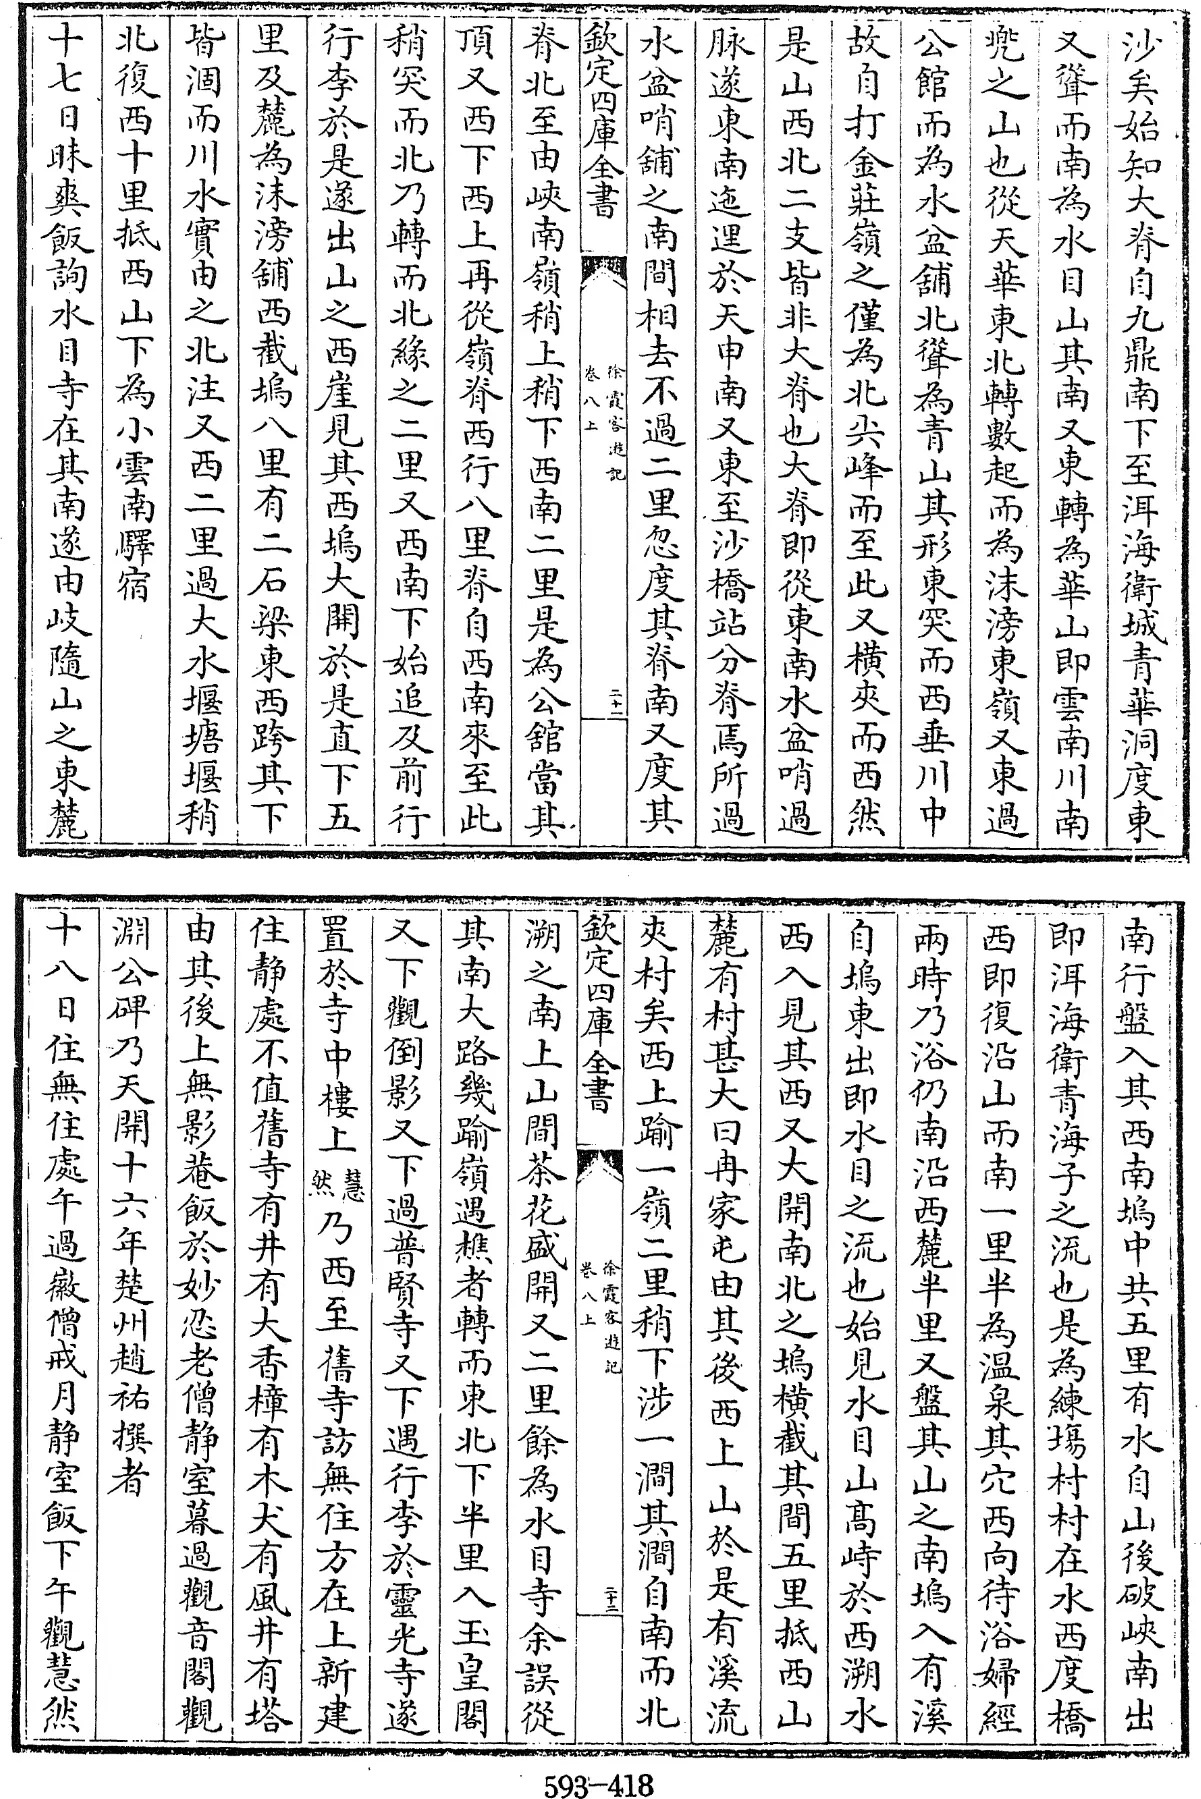 沙矣始知大脊自九鼎南下至洱海衛城青華洞度東
又聳而南為水目山其南又東轉為華山即雲南川南
兜之山也從天華東北轉數起而為沫滂東嶺又東過
公館而為水盆舖北聳為青山其形東突而西垂川中
故自打金莊嶺之僅為北尖峰而至此又橫夾而西然
是山西北二支皆非大脊也大脊即從東南水盆哨過
脉遂東南迤邐於天申南又東至沙橋站分脊焉所過
水盆哨舖之南間相去不過二里忽度其脊南又度其
欽定四庫全書
徐霞客遊記
卷八上
二十一
脊北至由峽南嶺稍上稍下西南二里是為公舘當其
頂又西下西上再從嶺脊西行八里脊自西南來至此
稍突而北乃轉而北緣之二里又西南下始追及前行
行李於是遂出山之西崖見其西塢大開於是直下五
里及麓為沫滂舖西截塢八里有二石梁東西跨其下
皆涸而川水實由之北注又西二里過大水堰塘堰稍
北復西十里抵西山下為小雲南驛宿
十七日昧爽飯詢水目寺在其南遂由岐隨山之東麓
南行盤入其西南塢中共五里有水自山後破峽南出
即洱海衛青海子之流也是為練塲村村在水西度橋
西即復沿山而南一里半為温泉其穴西向待浴婦經
兩時乃浴仍南沿西麓半里又盤其山之南塢入有溪
自塢東出即水目之流也始見水目山髙峙於西溯水
西入見其西又大開南北之塢橫截其間五里抵西山
麓有村甚大曰冉家屯由其後西上山於是有溪流
夾村矣西上踰一嶺二里稍下涉一澗其澗自南而北
欽定四庫全書
徐霞客遊記
卷八上
二十二
溯之南上山間茶花盛開又二里餘為水目寺余誤從
其南大路幾踰嶺遇樵者轉而東北下半里入玉皇閣
又下觀倒影又下過普賢寺又下遇行李於靈光寺遂
置於寺中樓上慧然乃西至舊寺訪無住方在上新建
住静處不值舊寺有井有大香樟有木犬有風井有塔
由其後上無影菴飯於妙忍老僧静室暮過觀音閣觀
淵公碑乃天開十六年楚州趙祐撰者
十八日住無住處午過徽僧戒月静室飯下午觀慧然
593-418